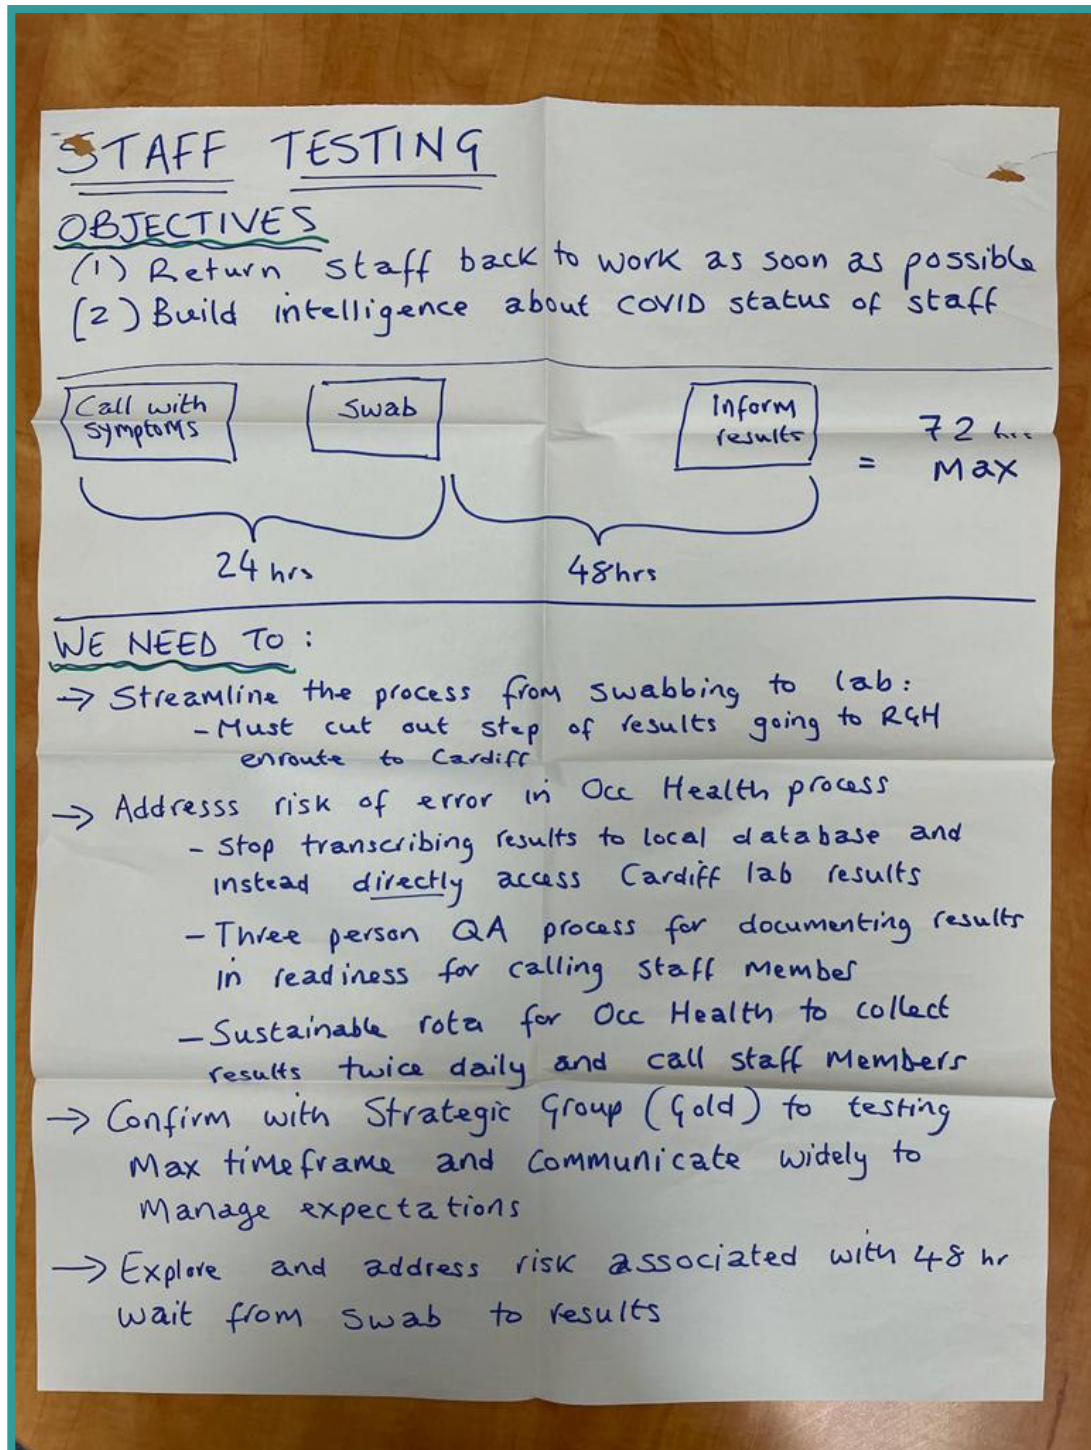 STAFF TESTING
OBJECTIVES
(1) Return staff back to work as soon as possible
(2) Build intelligence about COVID status of staff
Call with
symptoms
Swab
Inform
results
= 72 hrs
Max
24 hrs
48hrs
WE NEED TO :
→ Streamline the process from swabbing to lab:
- Must cut out step of results going to RGH
enroute to Cardiff
→ Addresss risk of error in Occ Health process
- Stop transcribing results to local database and
instead directly access Cardiff lab results
- Three person QA process for documenting results
in readiness for calling staff member
- Sustainable rota for Occ Health to collect
results twice daily and call staff members
→ Confirm with Strategic Group (Gold) to testing
Max timeframe and communicate widely to
Manage expectations
→ Explore and address risk associated with 48 hr
wait from swab to results